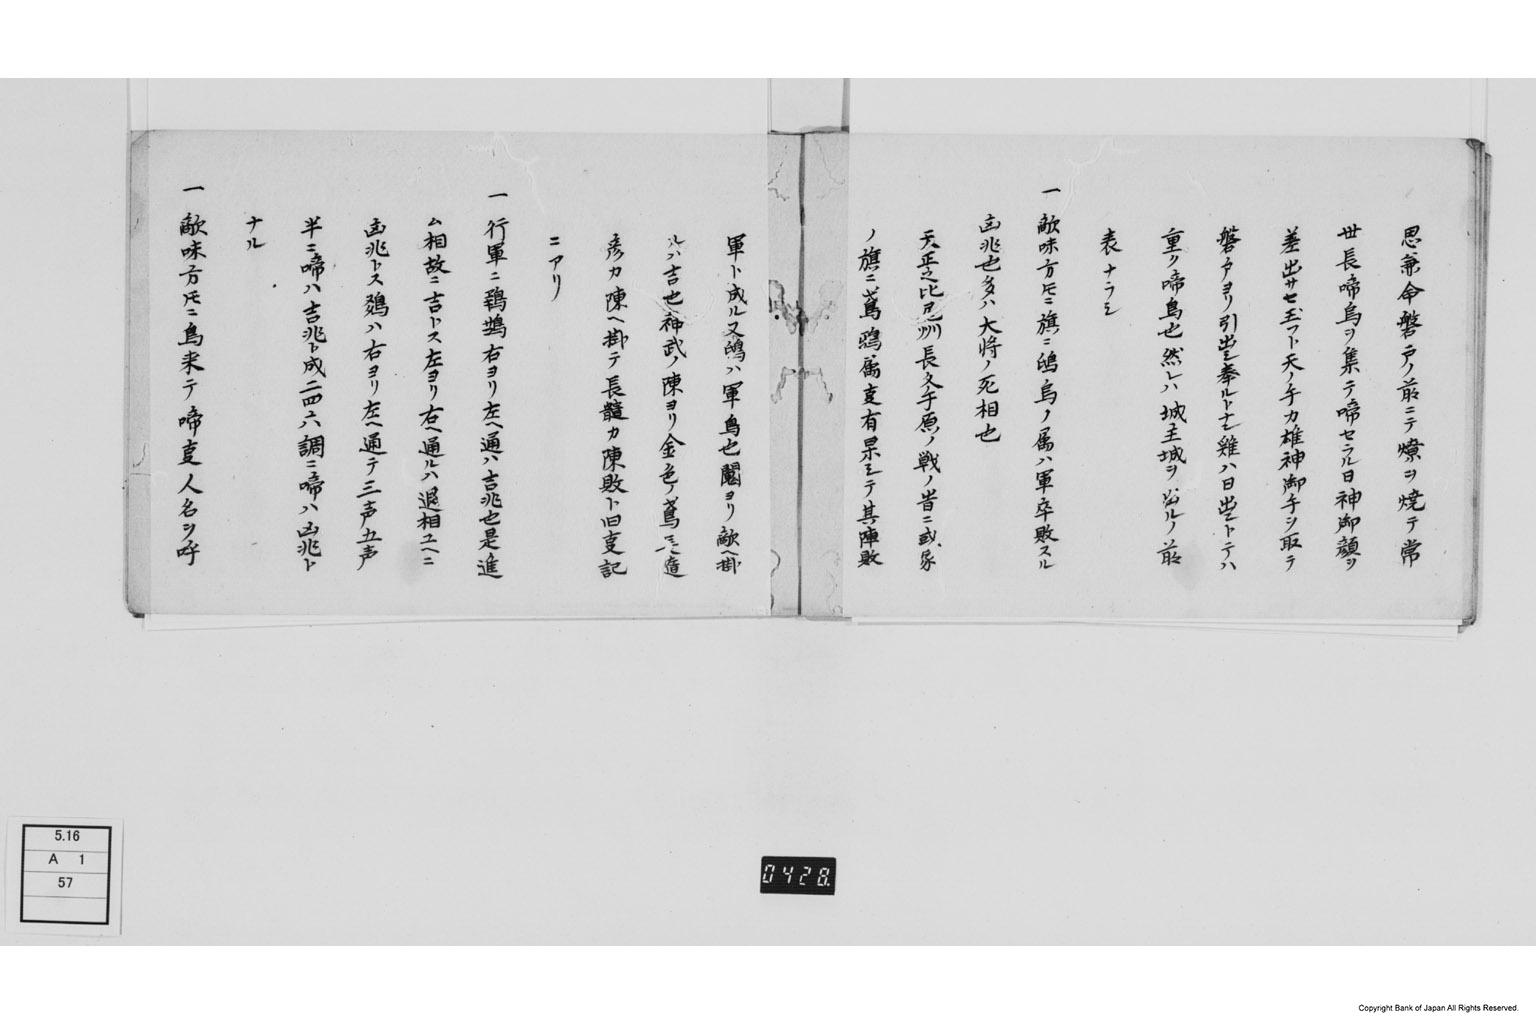 思兼命磐戸ノ前ニテ燎ヲ焼テ常
世長啼鳥ヲ集テ啼セラル日神御顔ヲ
差出サセ玉フト天ノ手力雄神御手ヲ取テ
磐戸ヨリ引出シ奉ルトナン雞ハ日出ントテハ
重ク啼鳥也然レハ城主城ヲ出ルノ前
表ナラン
一 敵味方𪜈ニ旗ニ鴟烏ノ属ハ軍卒敗スル
凶兆也多ハ大将ノ死相也
天正之比尾州長久手原ノ戦ノ昔ニ或家
ノ旗ニ鳶鴉属叓有果シテ其陣敗
軍ト成ル又鴟ハ軍鳥也闇ヨリ敵ヘ掛
ルハ吉也神武ノ陳ヨリ金色ノ鳶長髄
彦カ陳ヘ掛テ長髄カ陳敗ト旧叓記
ニアリ
一 行軍ニ鵄鵂右ヨリ左ヘ通ハ吉兆也是進
ム相故ニ吉トス左ヨリ右ヘ通ルハ退相ユヘニ
凶兆トス鵄ハ右ヨリ左ヘ通テ三声五声
半ニ啼ハ吉兆ト成二四六調ニ啼ハ凶兆ト
ナル
一 敵味方𪜈ニ鳥来テ啼叓人名ヲ呼
5.16
A 1
57
0428
Copyright Bank of Japan All Rights Reserved.